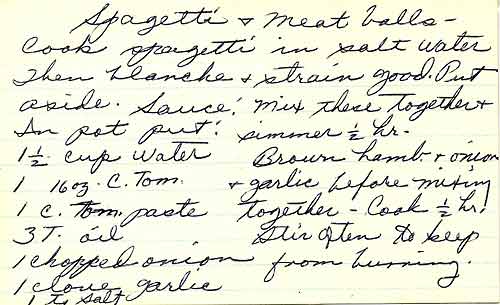 Spagetti & Meat balls -
Cook spagetti in salt water
then blanche & strain good. Put
aside. Sauce: Mix these together &
In pot put: simmer 1/2 hr.
1 1/2 cup water Brown hamb. & onion
1 16oz. C. Tom. & garlic before mixing
1 C. Tom. paste together - Cook 1/2 hr.
3 T. oil Stir often to keep
1 chopped onion from burning.
1 clove garlic
1 t. salt